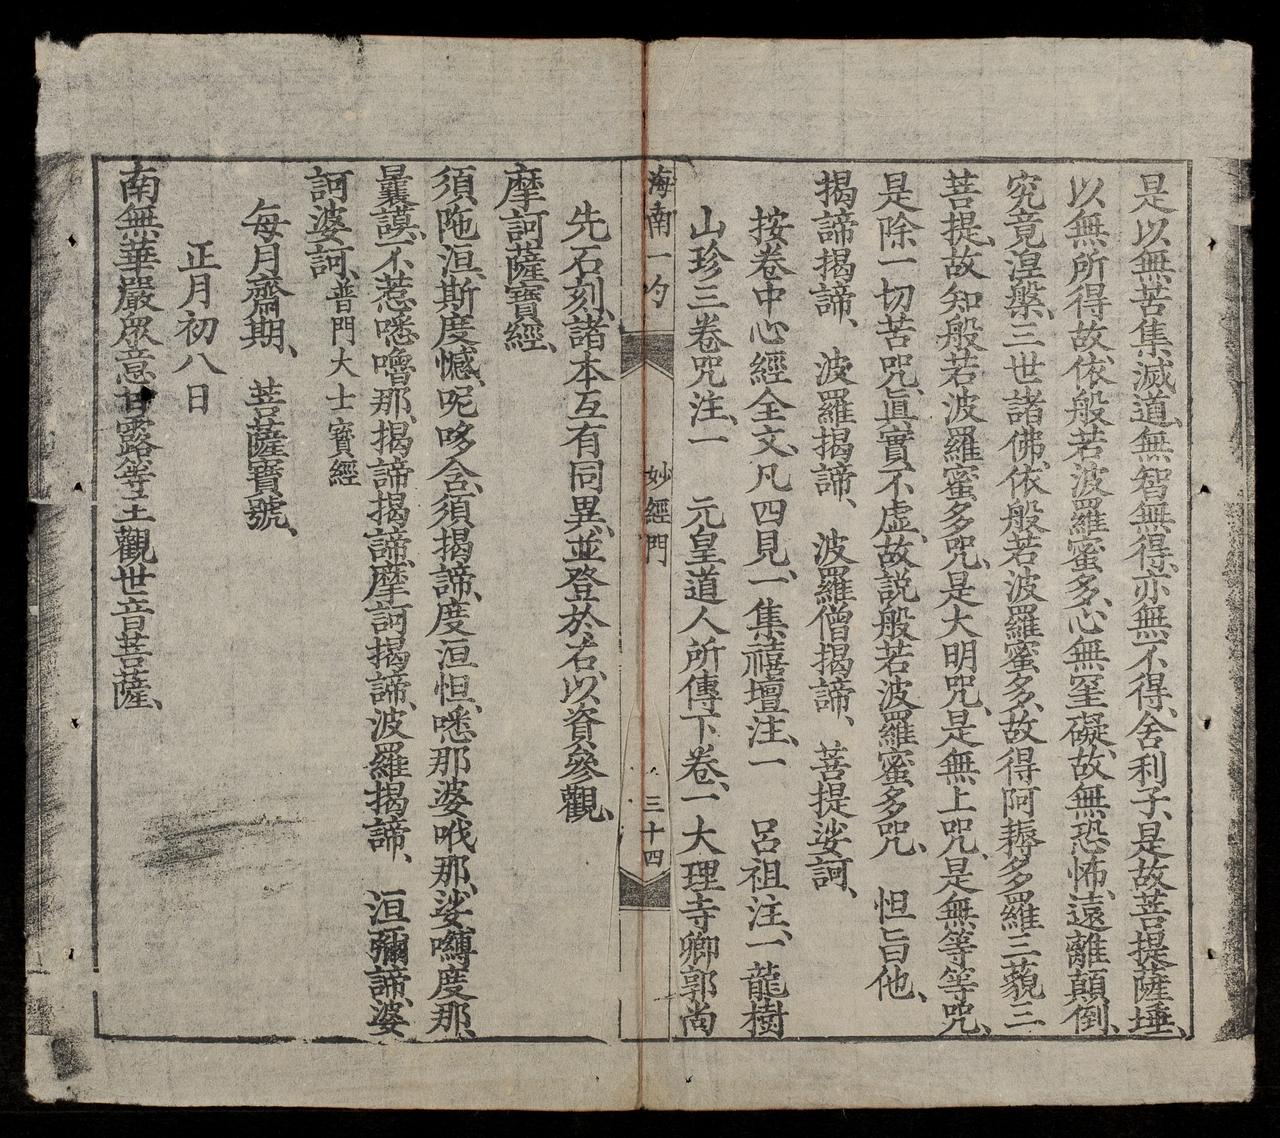 是以無苦集滅道、無智無得、亦無不得、舍利子、是故菩提薩埵、
以無所得故、依般若波羅蜜多、心無罣礙、故無恐怖、遠離顛倒、
究竟涅槃、三世諸佛、依般若波羅蜜多、故得阿耨多羅三藐三
菩提、故知般若波羅蜜多咒、是大明咒、是無上咒、是無等等咒、
是除一切苦咒、眞實不虛、故說般若波羅蜜多咒、怛旨他、
揭諦揭諦、波羅揭諦、波羅僧揭諦、菩提娑訶、
按卷中心經全文、凡四見、一集禧壇注、一呂祖注、一龍樹
山珍三卷咒注、一元皇道人所傳下卷、一大理寺卿郭尚
海南一勺 妙經門 三十四
先石刻、諸本互有同異、並登於右、以資參觀、
摩訶薩寶經、
須陁洹、斯度憾、呢哆含、須揭諦、度洹怛、悉那婆哦那、娑嚩度那、
曩謨、不惹㗭嚕那、揭諦揭諦、摩訶揭諦、波羅揭諦、洹彌諦、婆
訶婆訶、普門大士寶經
每月齋期、菩薩寶號、
正月初八日
南無華嚴眾意甘露等王觀世音菩薩、